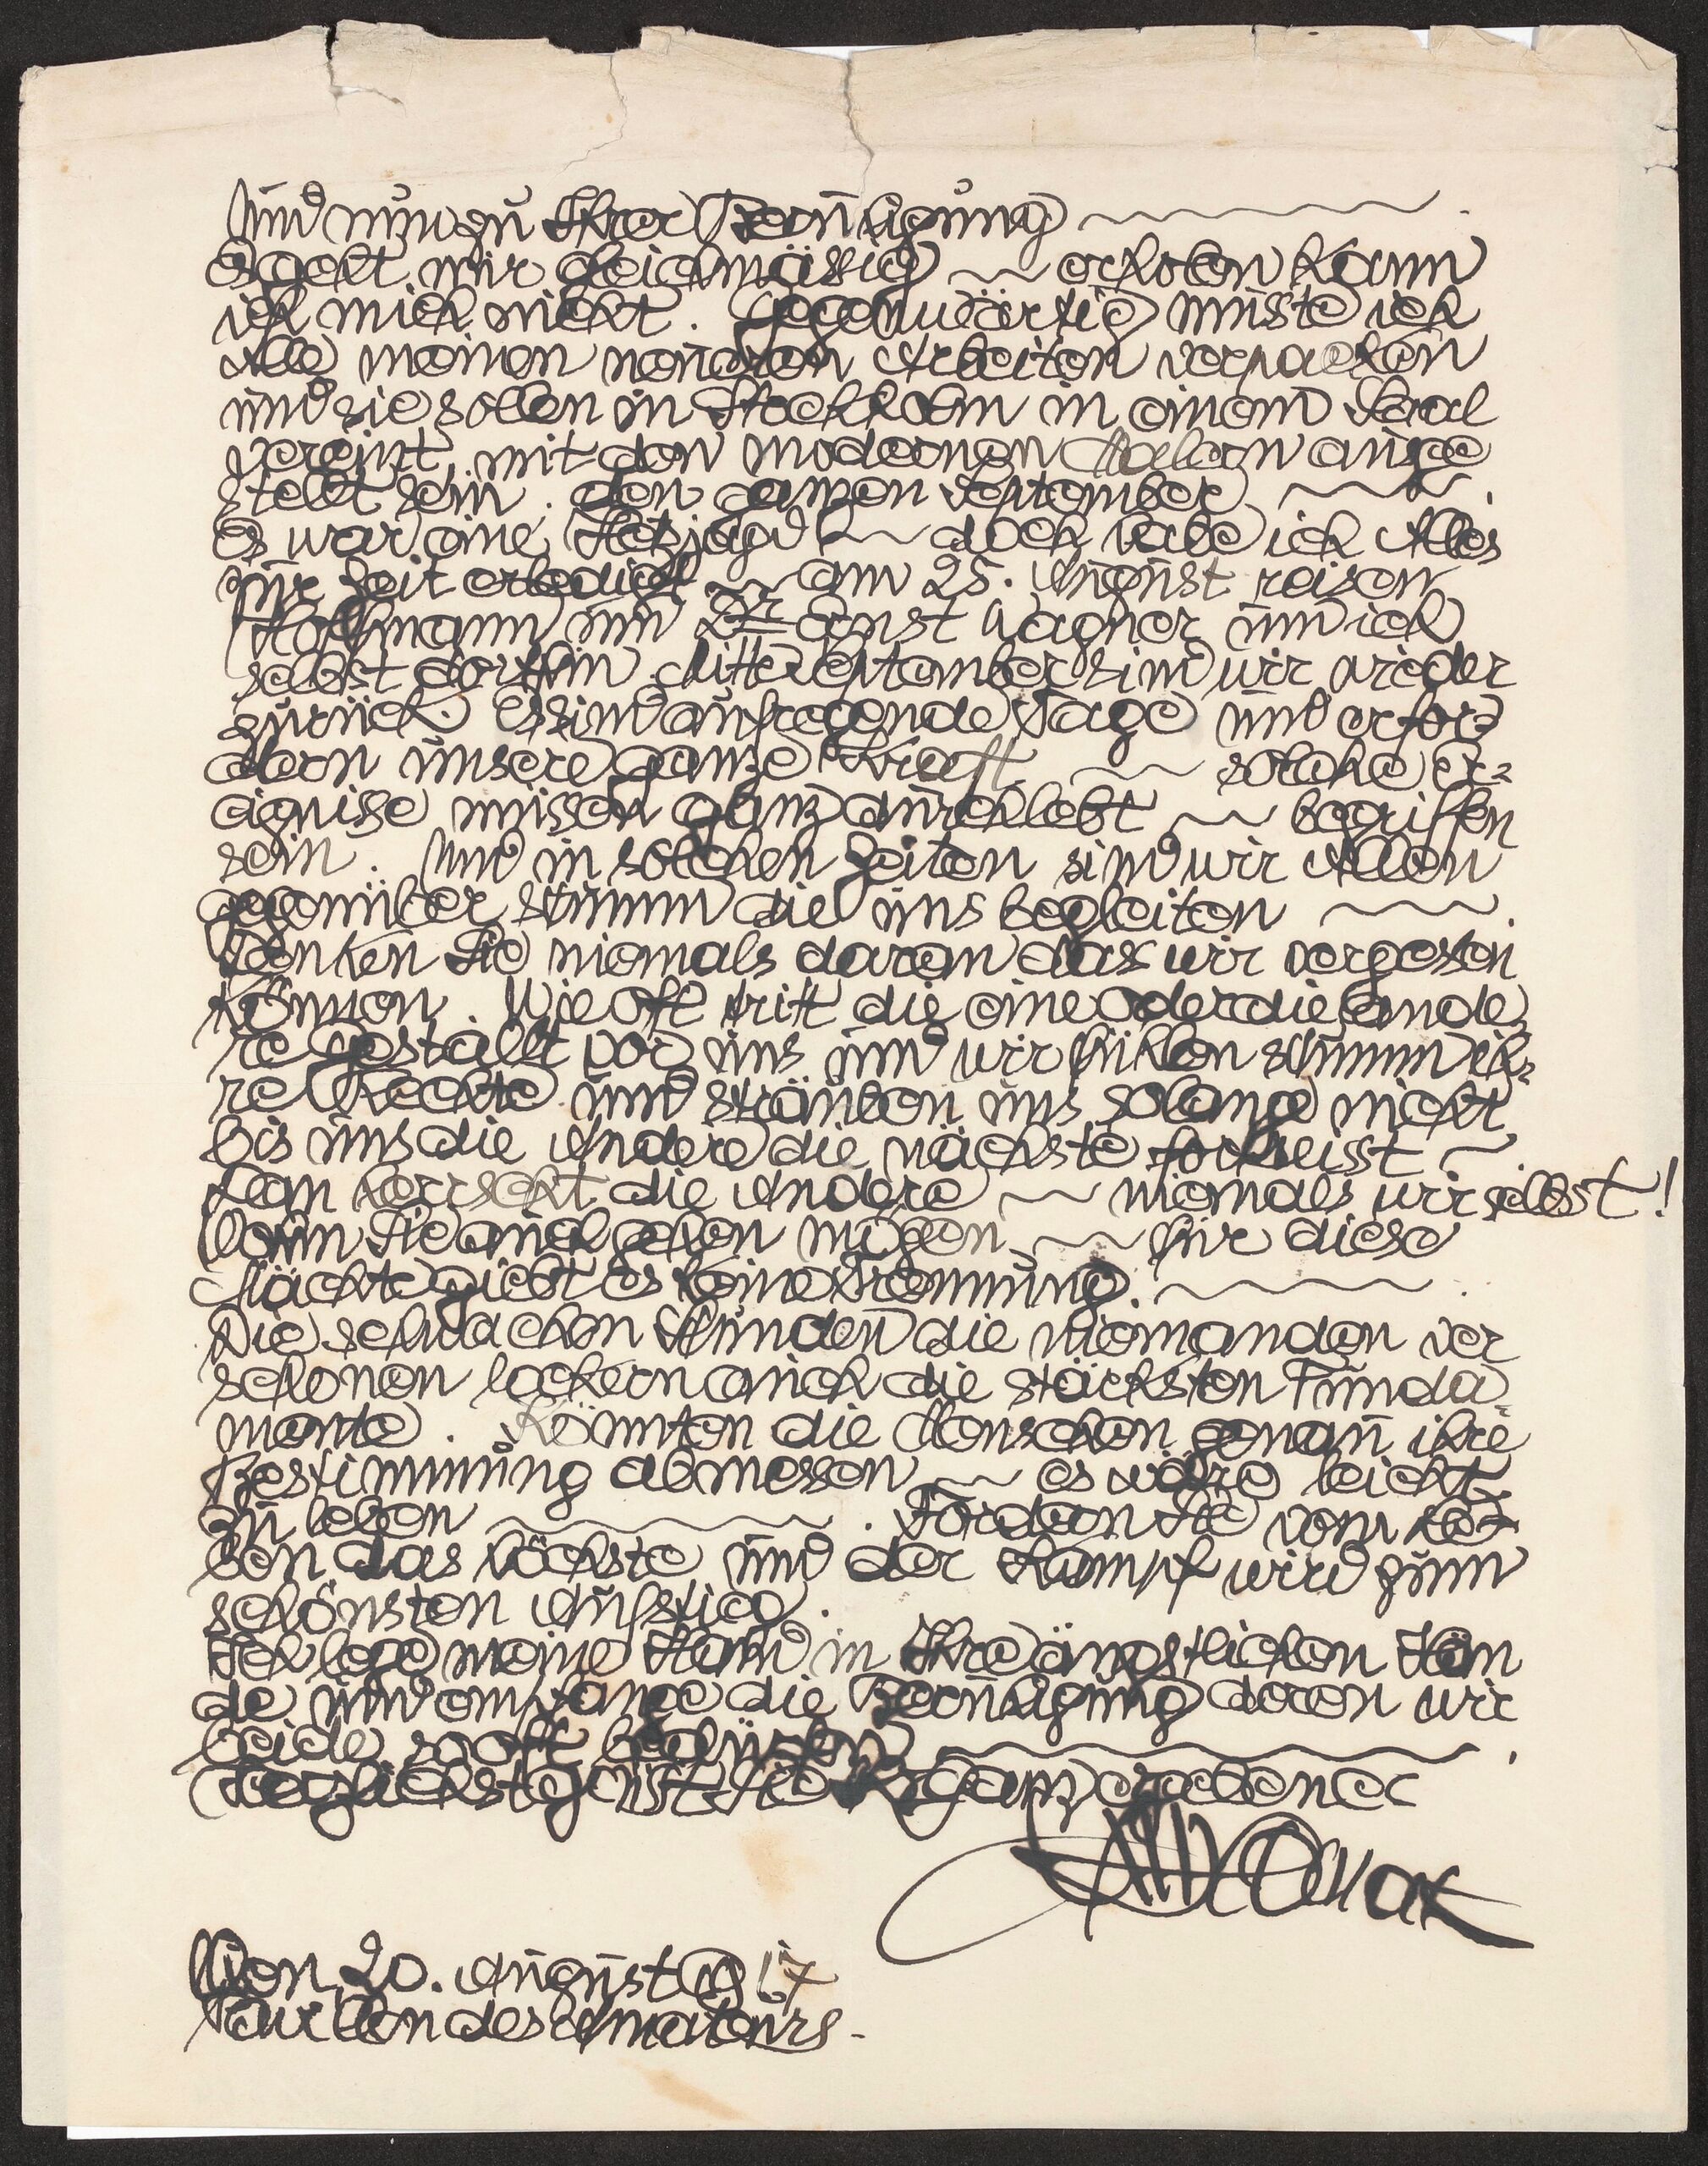 Und nun zu Ihrer Beruhigung ~.
Es geht mir gleichmässig ~ erholen kann
ich mich nicht. Gegenwärtig musste ich
Alle meinen neueren Arbeiten verpacken
und sie sollen in Stockholm in einem Saal
vereint, mit den modernen Malern ausge
stellt sein. den ganzen September ~.
Es war eine Hetzjagd ~ doch habe ich Alles
zur Zeit erledigt ~ am 25. August reisen
Hoffmann und Dr Ernst Wagner und ich
selbst dorthin. Mitte September sind wir wieder
zurück. Es sind aufregende Tage und erfor=
dern unsere ganze Kraft ~ solche Er=
eignisse müssen ganz durchlebt ~ begriffen
sein. Und in solchen Zeiten sind wir Allen
gegenüber stumm die uns begleiten ~.
Denken Sie niemals daran das wir vergessen
können. Wie oft tritt die eine oder die ande
re Gestallt vor uns und wir fühlen stumm ih=
re Rechte und sträuben uns solange nicht
bis uns die Andere die nächste fortreisst ~.
Dan herrscht die Andere ~ niemals wir selbst!
Wohin Sie auch gehen mögen ~ für diese
Mächte giebt es keine Trennung. ~.
Die schwachen Stunden die niemanden ver
schonen lockern auch die stärksten Funda=
mente. Könnten die Menschen genau ihre
Bestimmung abmessen ~ es wäre leicht
zu leben ~. Fordern Sie vom Le=
ben das höchste und der Kampf wird zum
schönsten Aufstieg.
Ich lege meine Hand in Ihre ängstlichen Hän
de und empfange die Beruhigung deren wir
beide so oft bedürfen ~.
Herzlichst grüsst Sie Ihr ganz ergebener
A Hanak
Wien 20. August 1917
Pavillon des Amateurs.